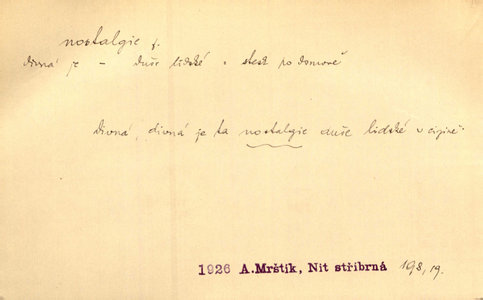 nostalgie f.
divná je – duše lidské • stesk po domově
divná, divná je ta nostalgie duše lidské v cizině
1926 A.Mrštík, Nit stříbrná 198,19.